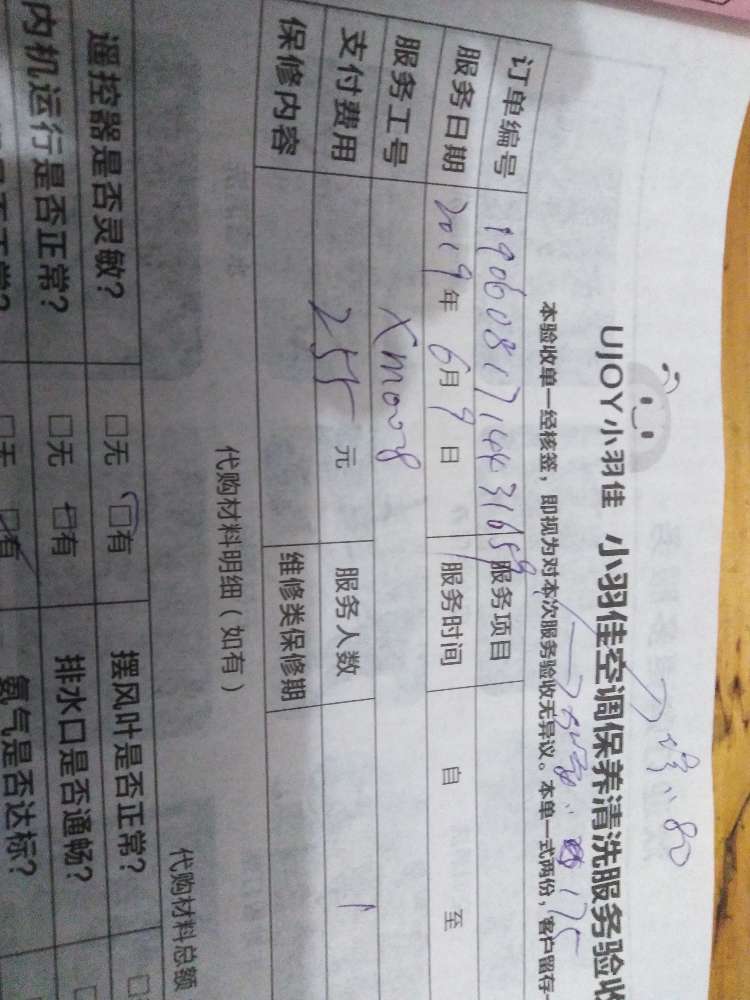 UJOY小羽佳 小羽佳空调保养清洗服务验收
本验收单一经核签，即视为对本次服务验收无异议。本单一式两份，客户留存一
175
订单编号 19060817144331659 服务项目
服务日期 2019年6月9日 服务时间 自 至
服务工号 Xm0008
支付费用 255元 服务人数 1
保修内容 维修类保修期
代购材料明细（如有） 代购材料总额
遥控器是否灵敏? □无 □有 摆风叶是否正常?
内机运行是否正常? □无 □有 排水口是否通畅?
□无 □有 氨气是否达标?